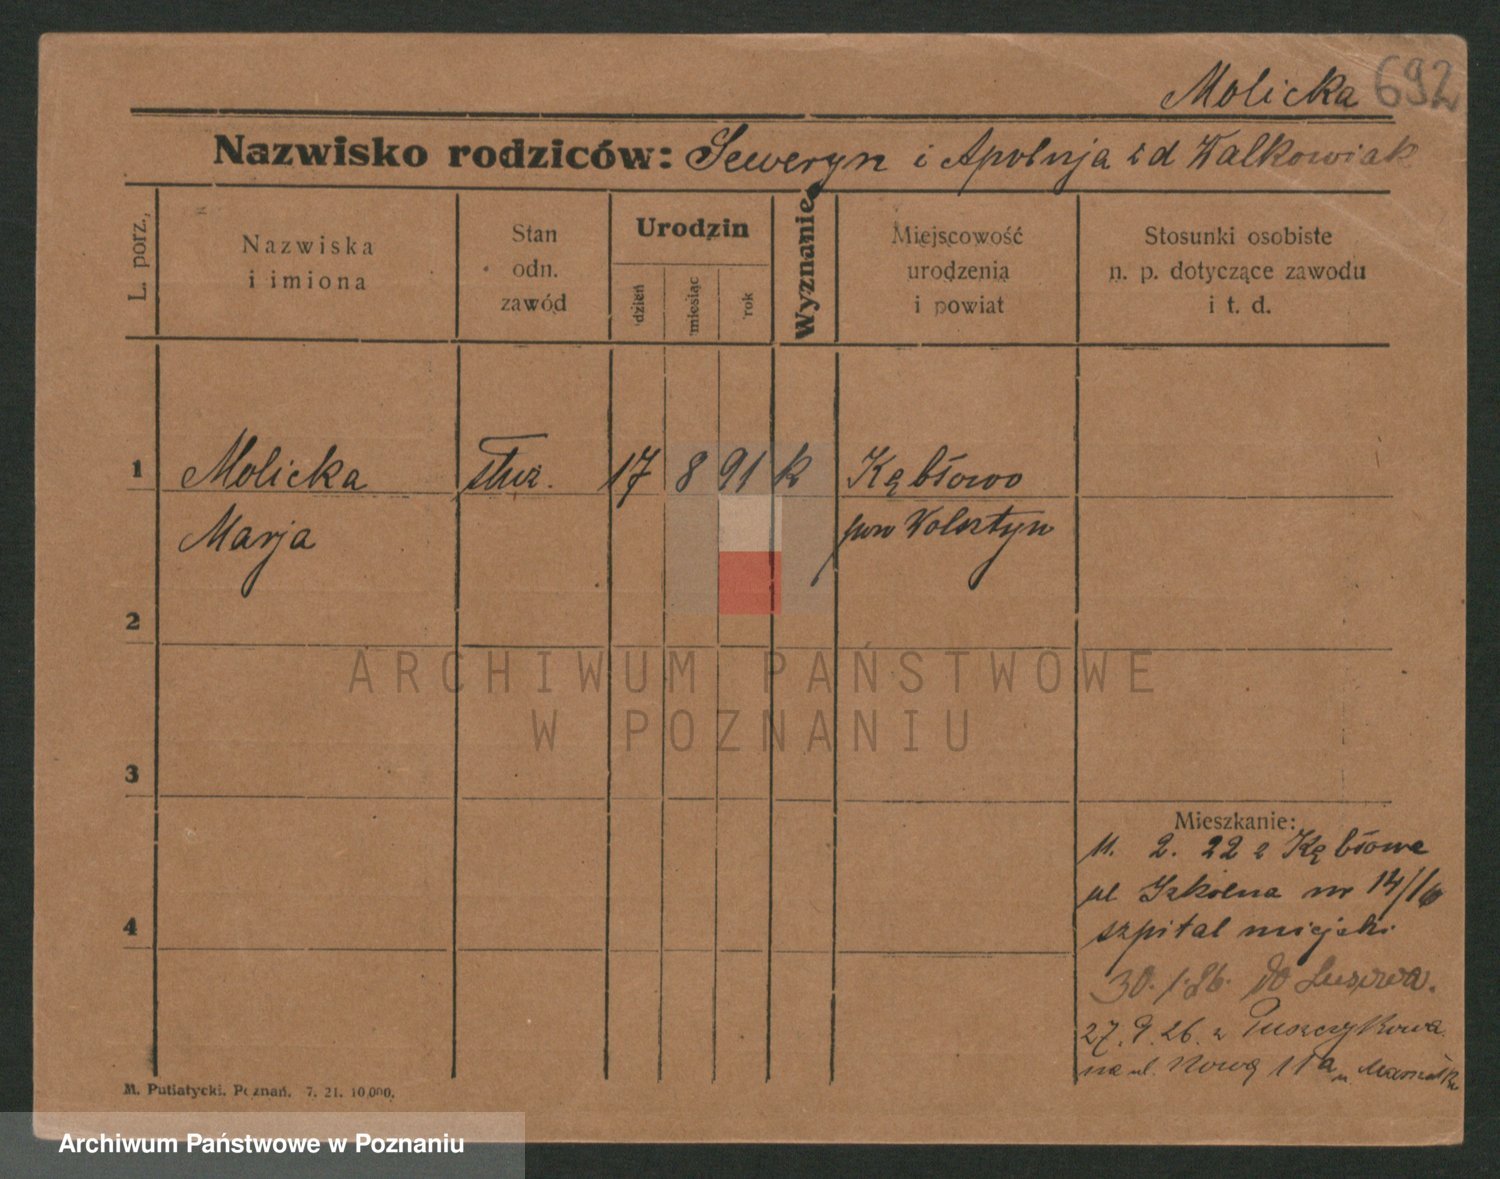 Molicka 692
Nazwisko rodziców: Seweryn i Apolnja z d Walkowiak
L. porz.
Nazwiska
i imiona
Stan
odn.
zawód
Urodzin
dzień
miesiąc
rok
Wyznanie
Miejscowość
urodzenia
i powiat
Stosunki osobiste
n. p. dotyczące zawodu
i t. d.
1 Molicka służ. 17 8 91 k Kębłowo
Marja pow Wolsztyn
2
3
4
ARCHIWUM PAŃSTWOWE
W POZNANIU
Mieszkanie:
11. 2. 22 z Kębłowa
ul Szkolna nr 14/16
szpital miejski
30. 1. 26. do
27. 9. 26. z Puszczykowa
na ul. Nową 11a
M. Putiatycki, Poznań. 7. 21. 10,000.
Archiwum Państwowe w Poznaniu